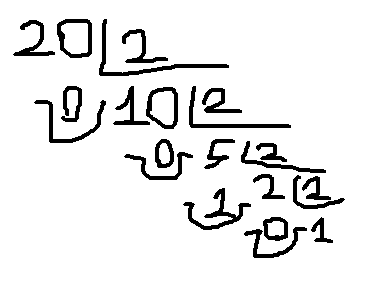 20 2
0 10 2
0 5 2
1 2 2
0 1